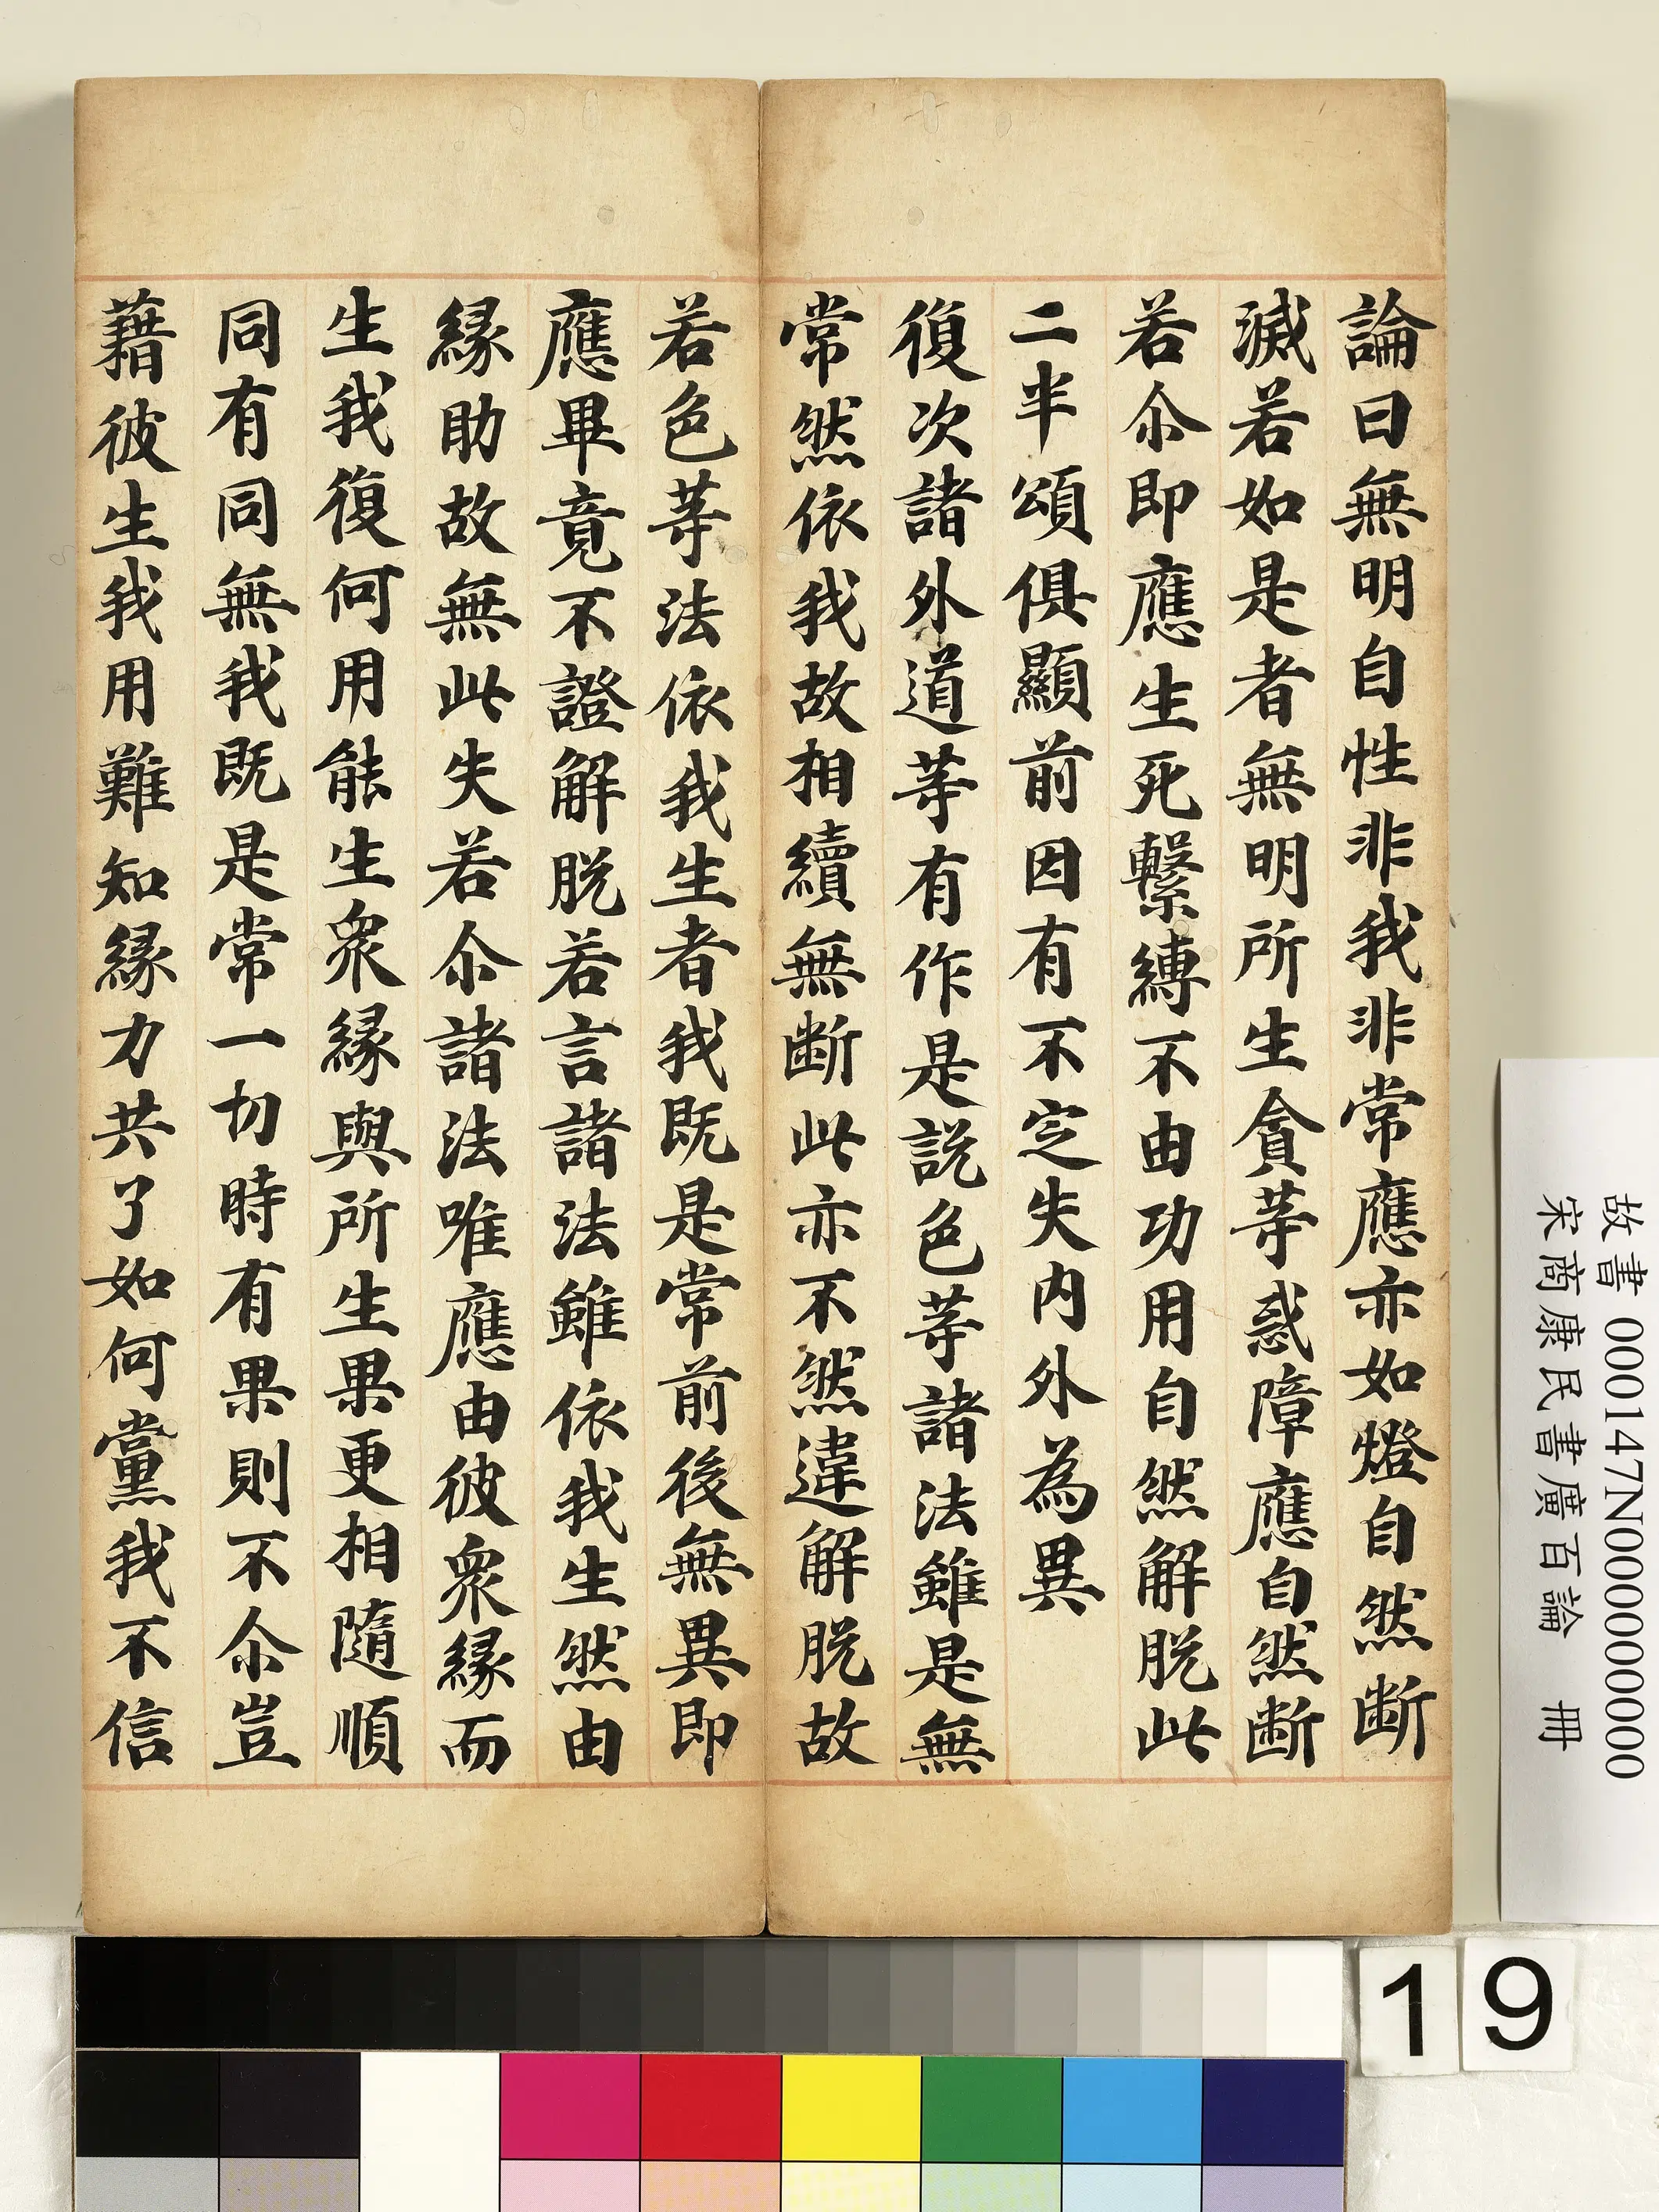 論曰無明自性非我非常應亦如燈自然断
滅若如是者無明所生貪等惑障應自然断
若尒即應生死繫縛不由功用自然解脱此
二半頌俱顯前因有不定失内外為異
復次諸外道等有作是説色等諸法雖是無
常然依我故相續無断此亦不然違解脱故
若色等法依我生者我既是常前後無異即
應畢竟不證解脱若言諸法雖依我生然由
縁助故無此失若尒諸法唯應由彼衆縁而
生我復何用能生衆縁與所生果更相隨順
同有同無我既是常一切時有果則不尒豈
藉彼生我用難知縁力共了如何黨我不信
故書 000147N000000000
宋商康民書廣百論 冊
19